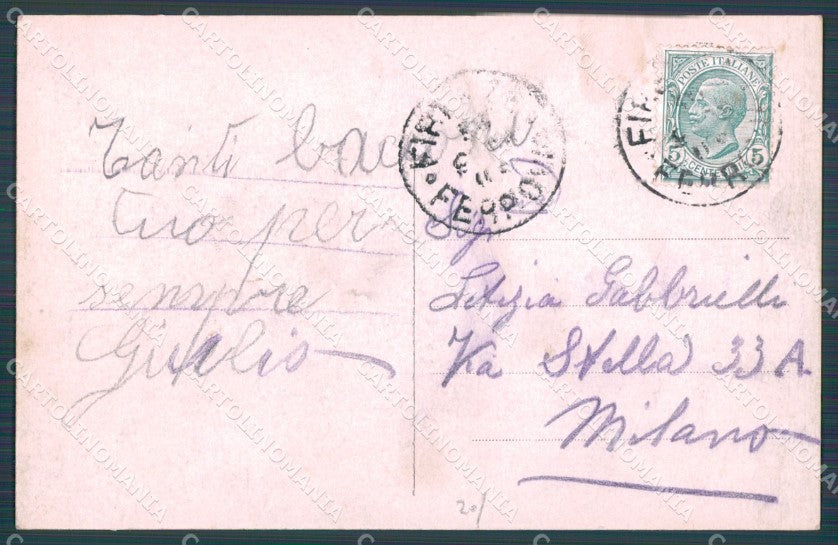 Tanti baci
tuo per
sempre
Giulio
Sig.
Letizia Gabbrielli
Via Stella 33 A
Milano
20/
POSTE ITALIANE
5 CENT. 5
FERROVIA
FERR
CARTOLINOMANIA